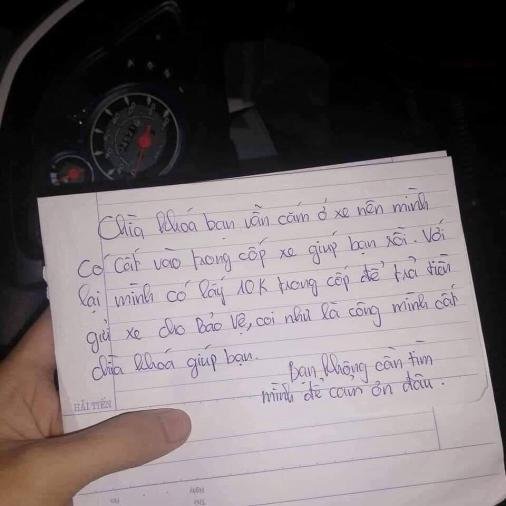 Chìa khoá bạn vẫn cắm ở xe nên mình
có cất vào trong cốp xe giúp bạn rồi. Với
lại mình có lấy 10K trong cốp để trả tiền
gửi xe cho Bảo Vệ, coi như là công mình cất
chìa khoá giúp bạn.
Bạn không cần tìm
mình để cảm ơn đâu.
HẢI TIẾN
Ngày
Thứ
No